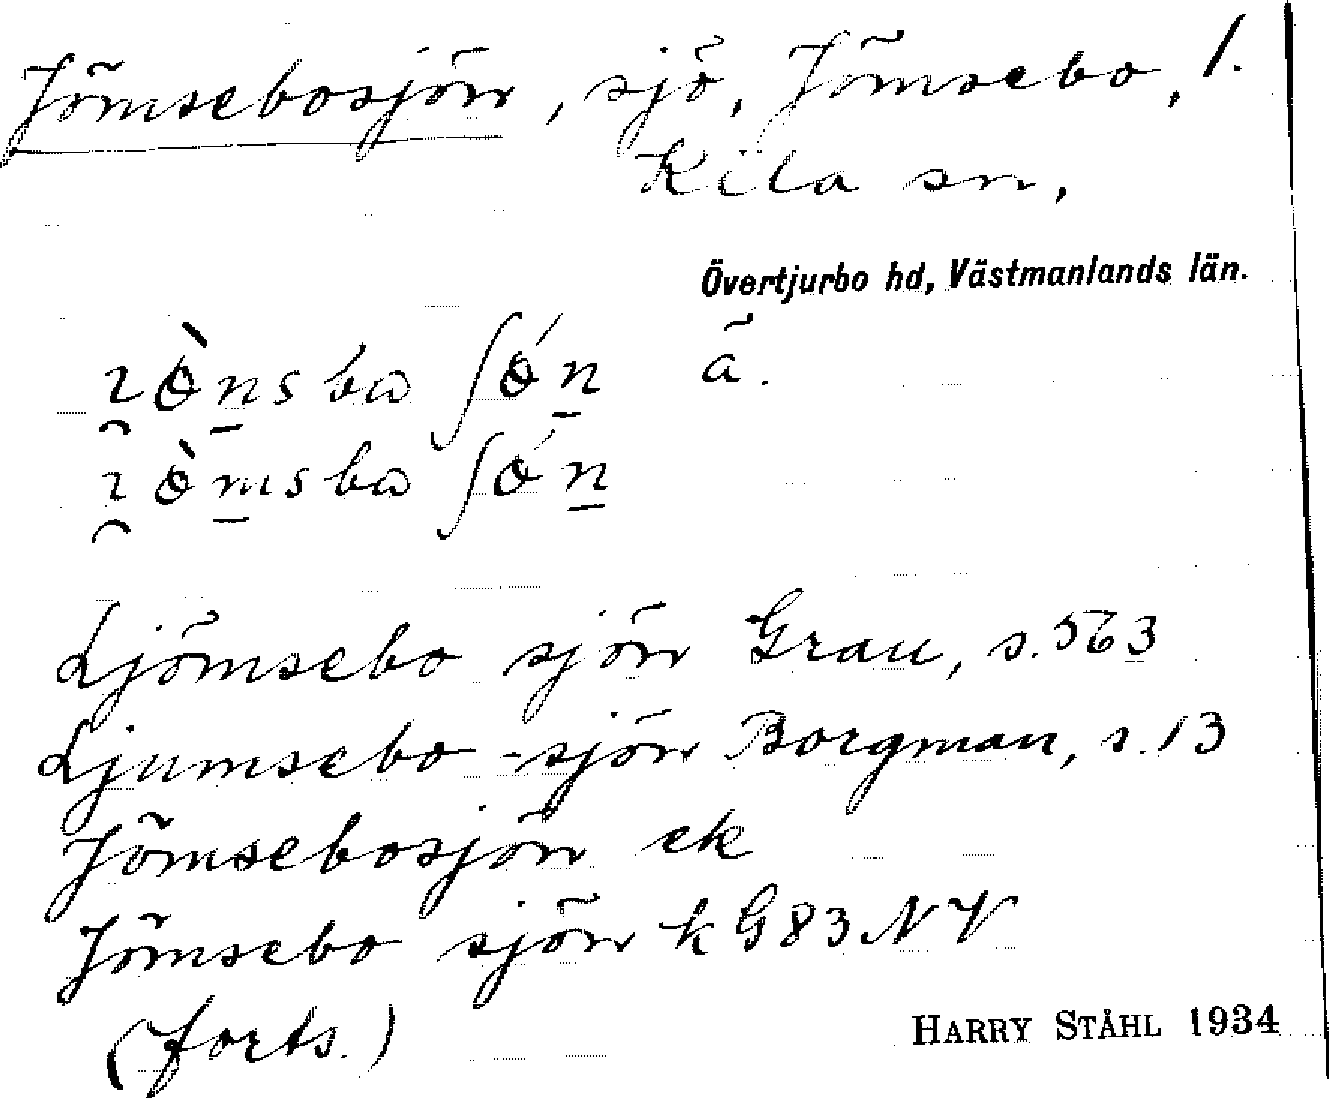 Jömsebosjön, sjö, Jömsebo, 1.
Kila sn,
Övertjurbo hd, Västmanlands län.
ã.
Ljömsebo sjön Grau, s. 563
Ljumsebo-sjön Borgman, s. 13
Jömsebosjön ek
Jömsebo sjön k G83 NV
(forts.)
HARRY STÅHL 1934